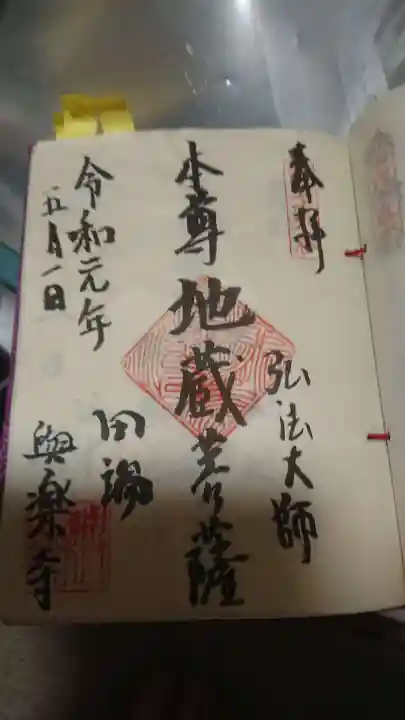 奉拝
弘法大師
本尊 地蔵菩薩
田端
與楽寺
令和元年
五月一日